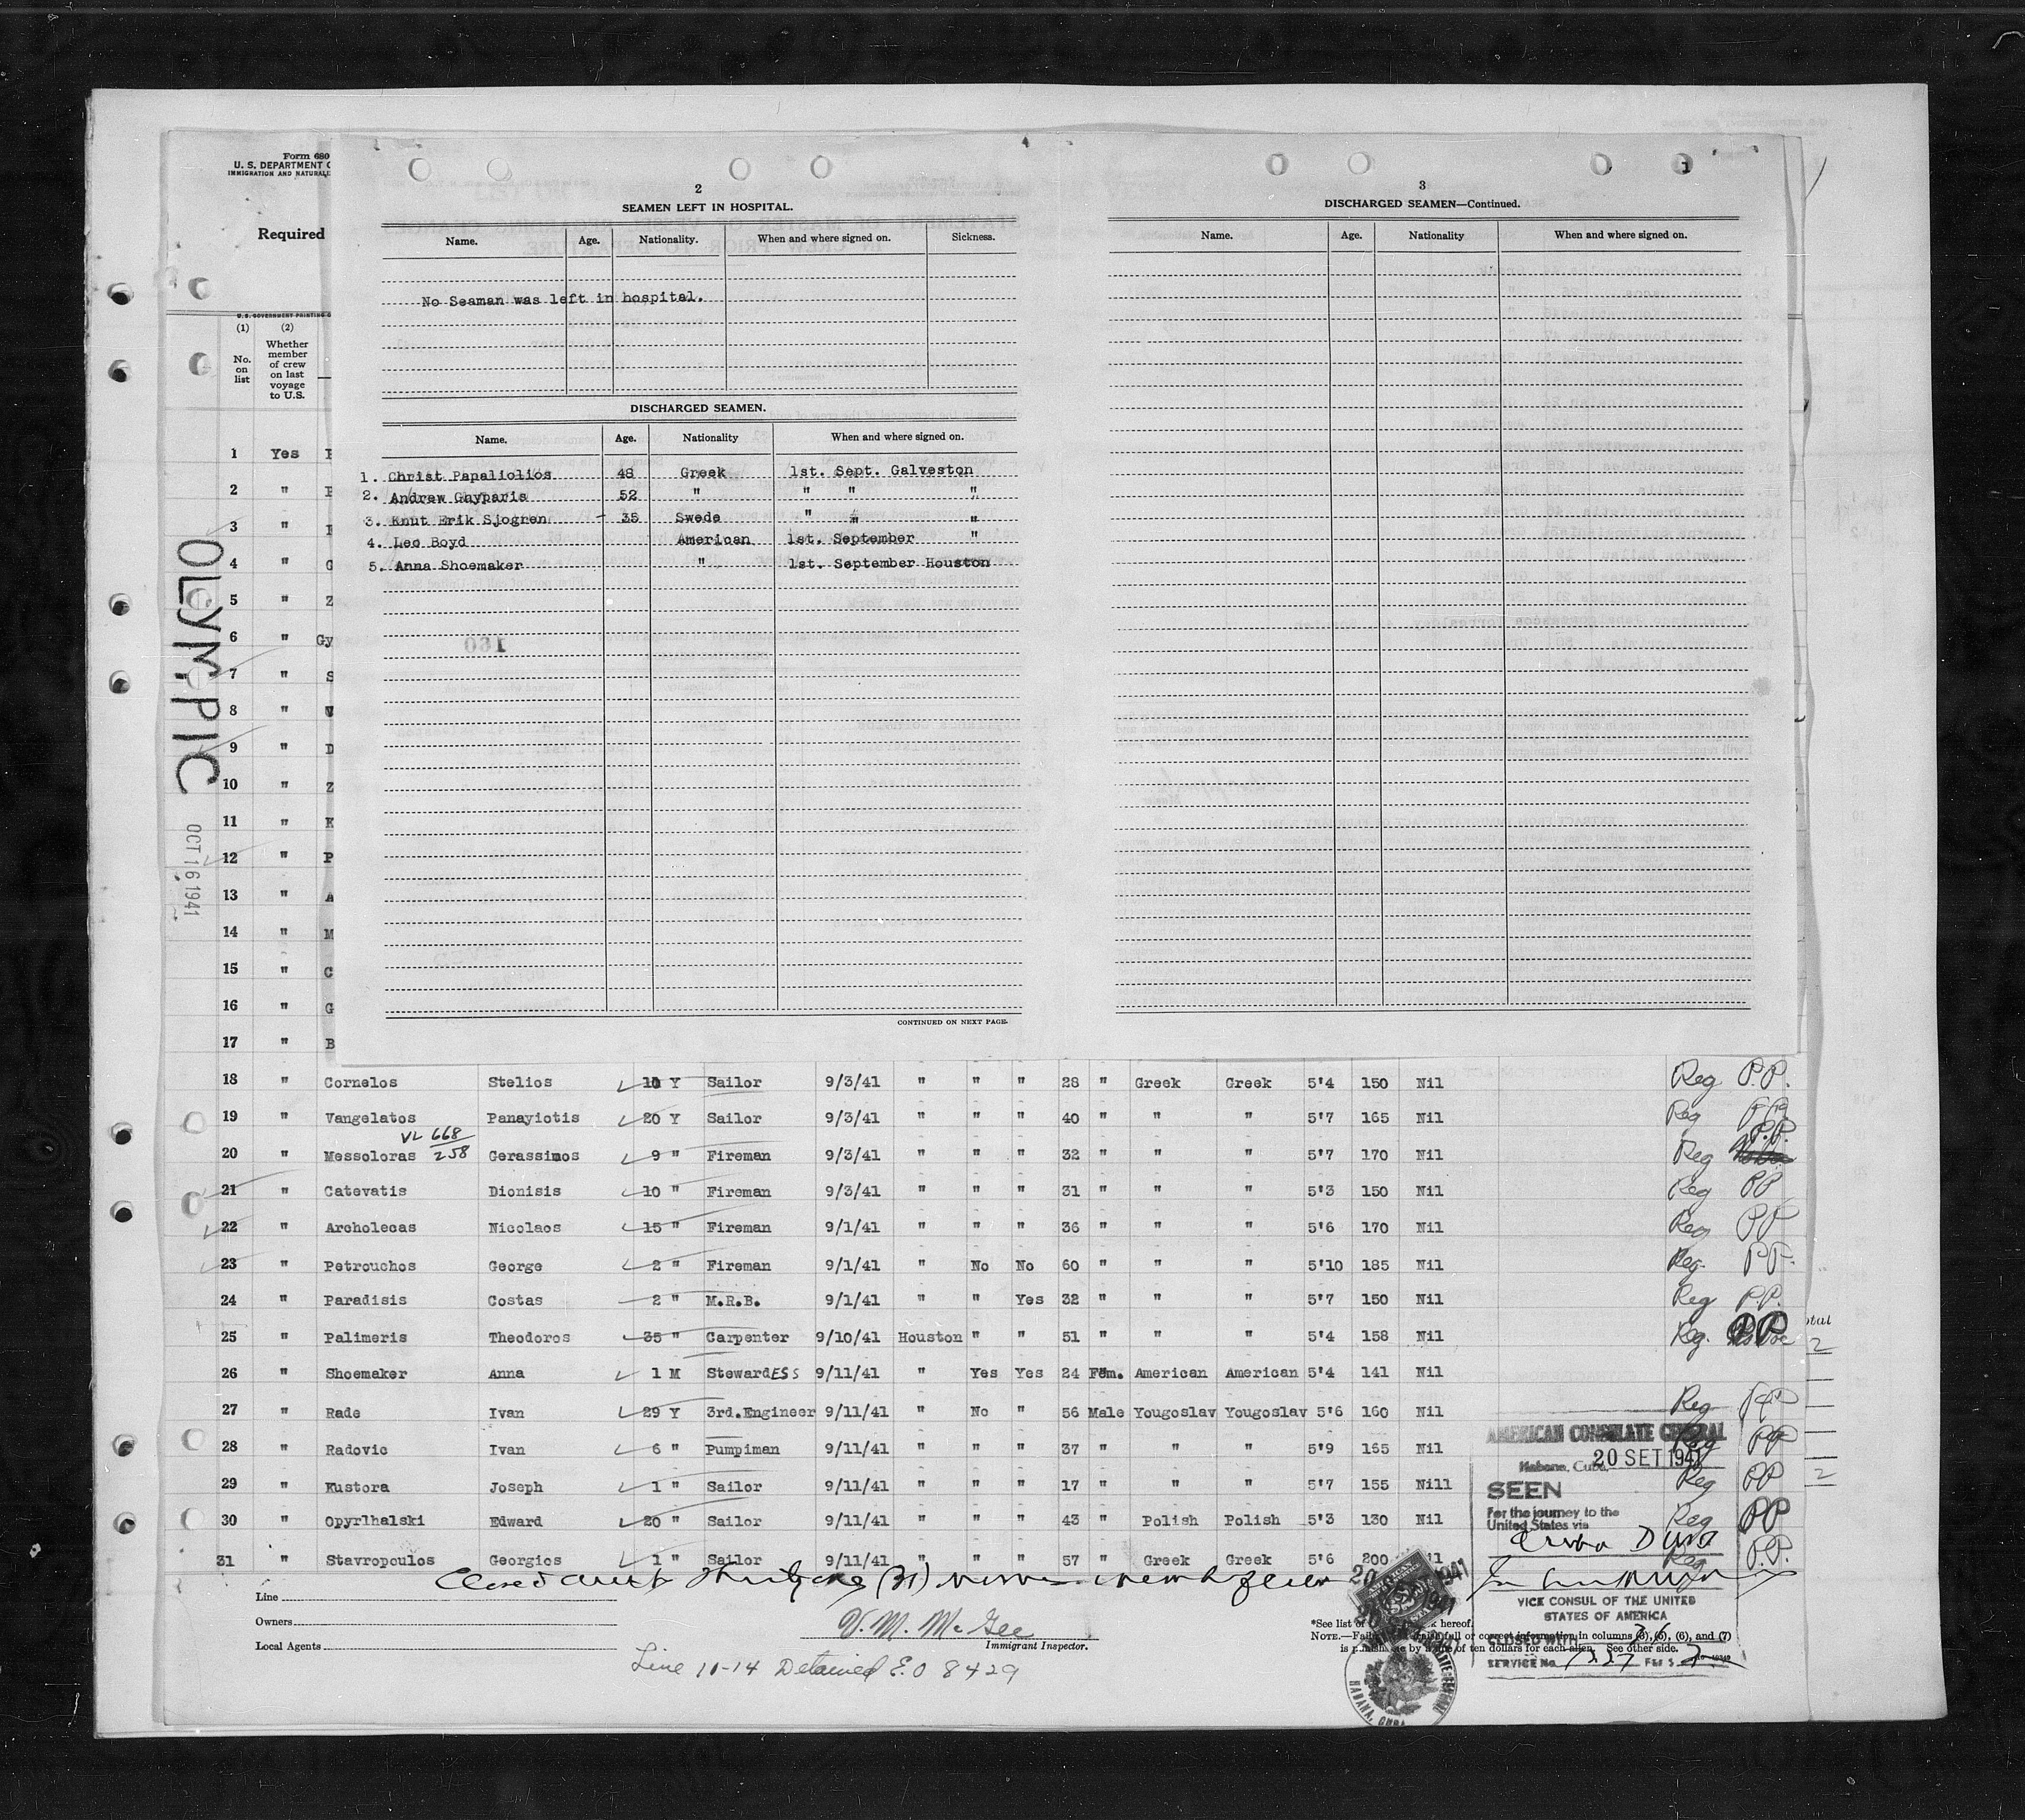 Form 680
U. S. DEPARTMENT O
IMMIGRATION AND NATURALI
Required
U. S. GOVERNMENT PRINTING O
(1) (2)
No. on list
Whether member of crew on last voyage to U.S.
2
SEAMEN LEFT IN HOSPITAL.
Name. Age. Nationality. When and where signed on. Sickness.
No Seaman was left in hospital.
DISCHARGED SEAMEN.
Name. Age. Nationality When and where signed on.
1. Christ Papaliolios 48 Greek 1st. Sept. Galveston
2. Andrew Ghyparis 52 " " " "
3. Knut Erik Sjogren 35 Swede " " "
4. Leo Boyd American 1st. September "
5. Anna Shoemaker " 1st. September Houston
130
CONTINUED ON NEXT PAGE.
3
DISCHARGED SEAMEN—Continued.
Name. Age. Nationality When and where signed on.
OLYMPIC
OCT 16 1941
1 Yes
2 "
3 "
4 " G
5 " Z
6 " Gy
7 " S
8 "
9 " D
10 " Z
11 " K
12 " P
13 " A
14 " M
15 " C
16 " G
17 " B
18 " Cornelos Stelios Y Sailor 9/3/41 " " " 28 " Greek Greek 5'4 150 Nil Reg P.P.
19 " Vangelatos Panayiotis 20 Y Sailor 9/3/41 " " " 40 " " " 5'7 165 Nil Reg P.P.
VL 668/258
20 " Messoloras Gerassimos 9 " Fireman 9/3/41 " " " 32 " " " 5'7 170 Nil Reg P.P.
21 " Catevatis Dionisis 10 " Fireman 9/3/41 " " " 31 " " " 5'3 150 Nil Reg PP
22 " Archolecas Nicolaos 15 " Fireman 9/1/41 " " " 36 " " " 5'6 170 Nil Reg PP
23 " Petrouchos George 2 " Fireman 9/1/41 " No No 60 " " " 5'10 185 Nil Reg. PP.
24 " Paradisis Costas 2 " M.R.B. 9/1/41 " " Yes 32 " " " 5'7 150 Nil Reg P.P.
25 " Palimeris Theodoros 35 " Carpenter 9/10/41 Houston " " 51 " " " 5'4 158 Nil Reg. PP
26 " Shoemaker Anna 1 M StewardESS 9/11/41 " Yes Yes 24 Fem. American American 5'4 141 Nil
27 " Rade Ivan 29 Y 3rd.Engineer 9/11/41 " No " 56 Male Yougoslav Yougoslav 5'6 160 Nil Reg PP
28 " Radovic Ivan 6 " Pumpiman 9/11/41 " " " 37 " " " 5'9 165 Nil Reg PP
29 " Kustora Joseph 1 " Sailor 9/11/41 " " " 17 " " " 5'7 155 Nill Reg PP
30 " Opyrlhalski Edward 20 " Sailor 9/11/41 " " " 43 " Polish Polish 5'3 130 Nil Reg PP
31 " Stavropoulos Georgios 1 " Sailor 9/11/41 " " " 57 " Greek Greek 5'6 200 Reg P.P.
otal
2
2
AMERICAN CONSULATE GENERAL
Habana, Cuba, 20 SET 1941
SEEN
For the journey to the
United States via
VICE CONSUL OF THE UNITED
STATES OF AMERICA
CLOSED WITH
SERVICE No.
Line
Owners
Local Agents
V. M. McGee
Immigrant Inspector.
Line 11-14 Detained E.O 8429
*See list of hereof.
NOTE.—full or correct information in columns (3), (5), (6), and (7)
is by of ten dollars for each alien. See other side.
HABANA, CUBA